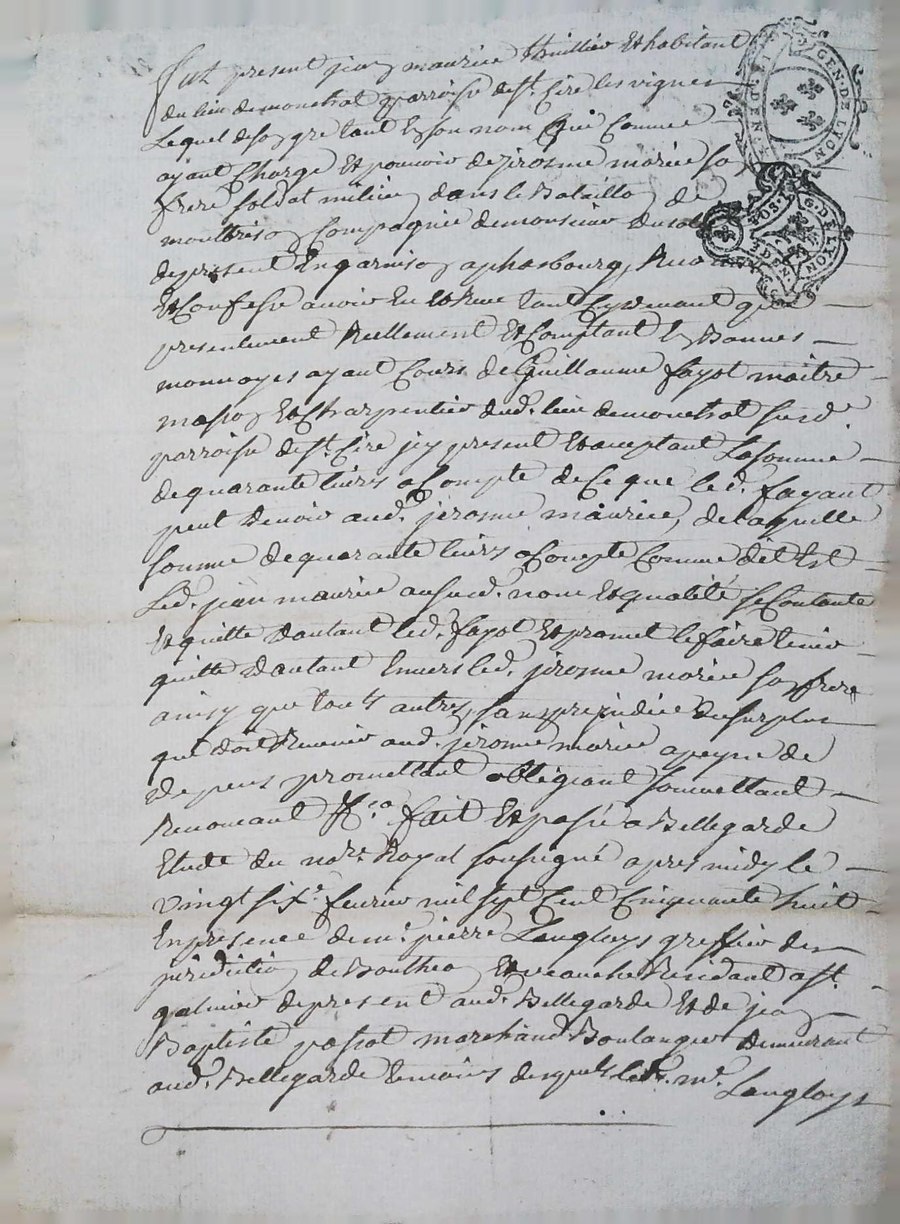 fut present jean maurice thuillier Et habitant
du lieu de monchal parroisse de st. Cire les vignes
Lequel de son gre tant En son nom que Comme
ayant Charge Et pouvoir de jirosme maurice son
frere soldat milicien dans le Bataillon de
montbrison Compagnie de monsieur
de present En garnison a phasbourg,
Et Confesse avoir Eu Et Receu tant Cydevant que
presentement Reellement Et Comptant En Bonnes
monnoyes ayant Cours de Guillaume fayot maitre
masson Et Charpentier dud. lieu de monchal susd.
parroisse de st. Cire icy present Et acceptant La somme
de quarante livres a Compte de Ce que led. fayaut
peut devoir aud. jirosme maurice, de laquelle
somme de quarante livres a Compte Comme dit Est
Led. jean maurice aususd. nom Et qualité se Contante
Et quitte dautant led. fayot Et promet le faire tenir
quitte dautant Envers led. jirosme maurice son frere
ainsy que touts autres, sans prejudice du surplus
qui doit Revenir aud. jirosme maurice a peyne de
depens promettant obligeant soumettant
Renoncant &ca. fait Et passé a Bellegarde
Etude du nore. Royal soussigné apres midy le
vingt sixe. fevrier mil sept Cent Cinquante huit
En presence de me. pierre Langloys greffier des
jurisdiction de Boutheon Et veauche Residant a st.
galmier de present aud. Bellegarde Et de jean
Baptiste passot marchand Boulanger demeurant
aud. Bellegarde temoins desquels led. me. Langloys
GEN. DE LYON
G. DE LYON